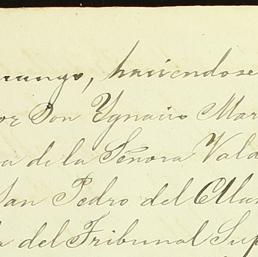 haciendose
Don Ygnacio Mar
a de la Señora Vald
San Pedro del Alla
del Tribunal Sup